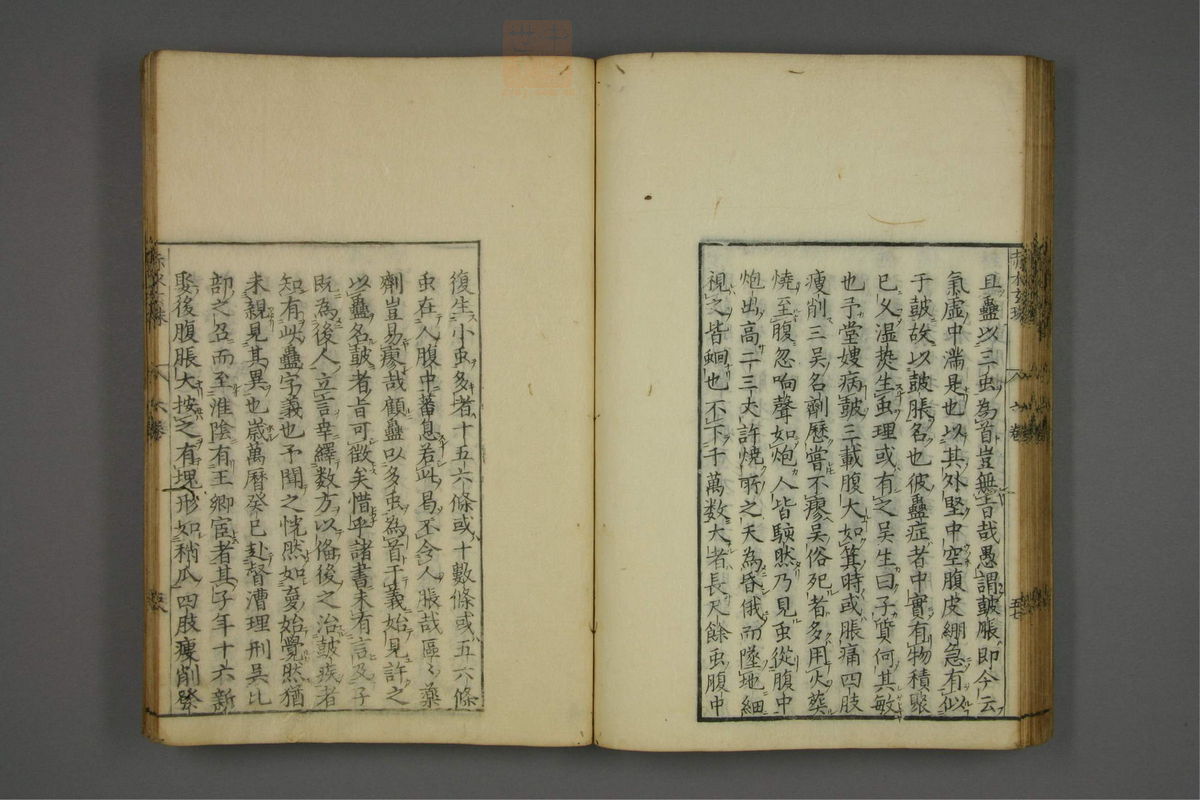 且蠱以三虫為首豈無旨哉愚謂皷脹即今云
氣虛中滿是也以其外堅中空腹皮綳急有似
于皷故以皷脹名也彼蠱症者中實有物積聚
已久湿𤍠生虫理或有之吴生曰子質何其敏
也予堂嫂病皷三載腹大如箕時或脹痛四肢
瘦削三吴名劑歷嘗不瘳吴俗死者多用火葬
燒至腹忽响聲如炮人皆駭然乃見虫從腹中
炮出高二三丈許燒所之天為昏俄而墜地細
視之皆蛔也不下千萬数大者長尺餘虫腹中
復生小虫多者十五六條或十數條或五六條
虫在人腹中蕃息若此曷不令人脹哉區〻藥
劑豈易瘳哉顧蠱以多虫為首于義始見許之
以蠱名皷者旨可徵矣惜乎諸書未有言及子
既為後人立言幸繹数方以俻後之治皷疾者
知有此蠱字義也予聞之恍然如夢始覺然猶
未親見其異也歲萬曆癸巳赴督漕理刑吴比
部之召而至淮陰有王卿宦者其子年十六新
娶後腹脹大按之有塊形如稍瓜四肢瘦削發
赤水玄珠
八
六卷